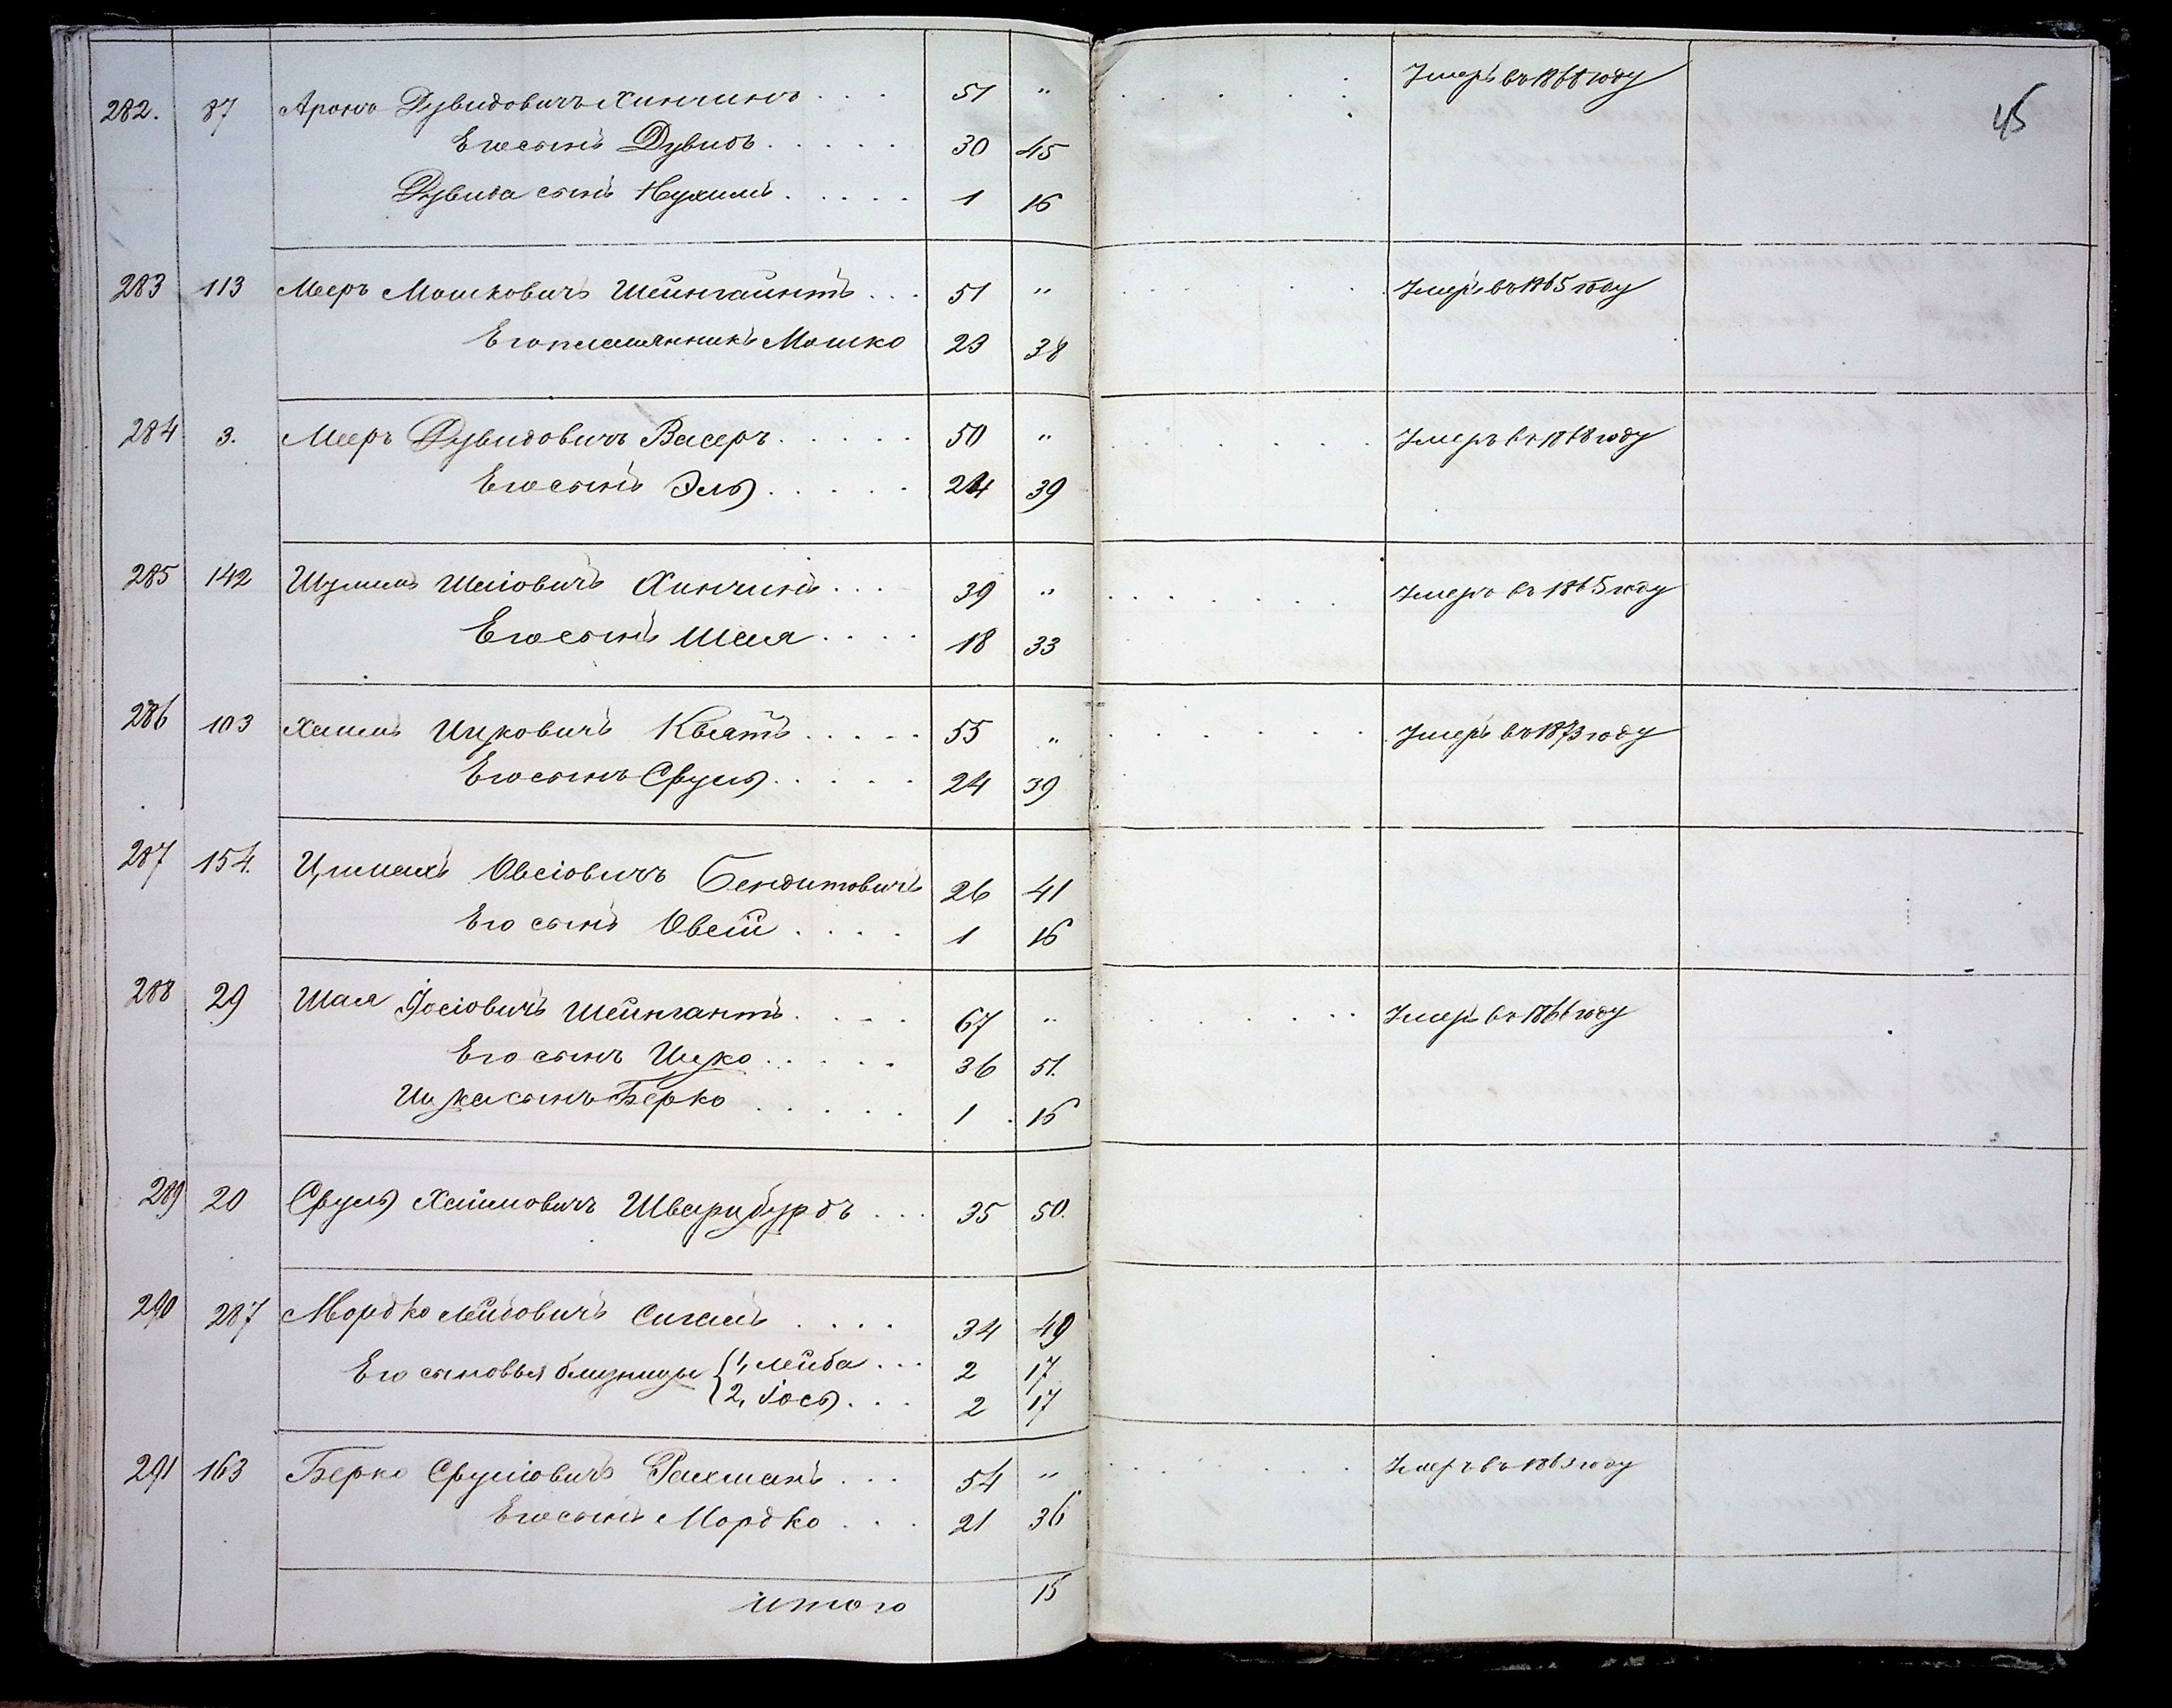 45
282. 87 Аронъ Дувидовичъ Хинчинъ . . . 51 " Умеръ въ 1868 году
Его сынъ Дувидъ . . . . . 30 45
Дувида сынъ Нухимъ . . . . . 1 16
283 113 Мееръ Мошковичъ Шейнгайнтъ . . . 51 " Умеръ въ 1865 году
Его племянникъ Мошко 23 38
284 3. Мееръ Дувидовичъ Васеръ . . . . . 50 " Умеръ въ 1868 году
Его сынъ Эль . . . . . 24 39
285 142 Шулимъ Шаіовичъ Хинчинъ . . . 39 " Умеръ въ 1865 году
Его сынъ Шая . . . . 18 33
286 103 Хаимъ Ицковичъ Квятъ . . . . . 55 " Умеръ въ 1873 году
Его сынъ Сруль . . . . . 24 39
287 154. Цимахъ Овсіовичъ Бендитовичъ 26 41
Его сынъ Овсій . . . . 1 16
288 29 Шая Іосіовичъ Шейнгантъ . . . . 67 " Умеръ въ 1866 году
Его сынъ Ицко . . . . . 36 51.
Ицка сынъ Берко . . . . . 1 16
289 20 Сруль Хаимовичъ Шварцбурдъ . . . 35 50.
290 287 Мордко Лейбовичъ Сигалъ . . . . 34 49
Его сыновья близнецы 1, Лейба . . . 2 17
2, Іось . . . 2 17
291 163 Берко Сруліовичъ Рахманъ . . . 54 " Умеръ въ 1863 году
Его сынъ Мордко . . . 21 36
итого 15